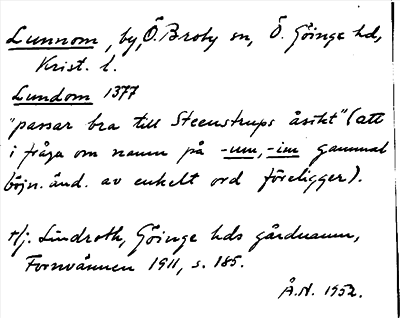 Lunnom, by, Ö. Broby sn, Ö. Göinge hd,
Krist. l.
Lundom 1377
"passar bra till Steenstrups åsikt" (att
i fråga om namn på -um, -im gammal
böjn.änd. av enkelt ord föreligger).
H. Lindroth, Göinge hds gårdnamn,
Fornvännen 1911, s. 185.
Å.N. 1952.